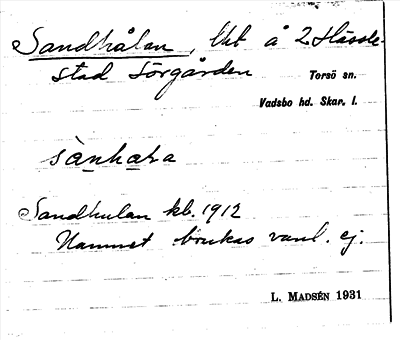 Sandhålan, lht å 2 Hassle-
stad Sörgården Torsö sn.
Vadsbo hd. Skar. l.
sanhala
Sandhulan kb. 1912
Namnet brukas vanl. ej.
L. Madsén 1931